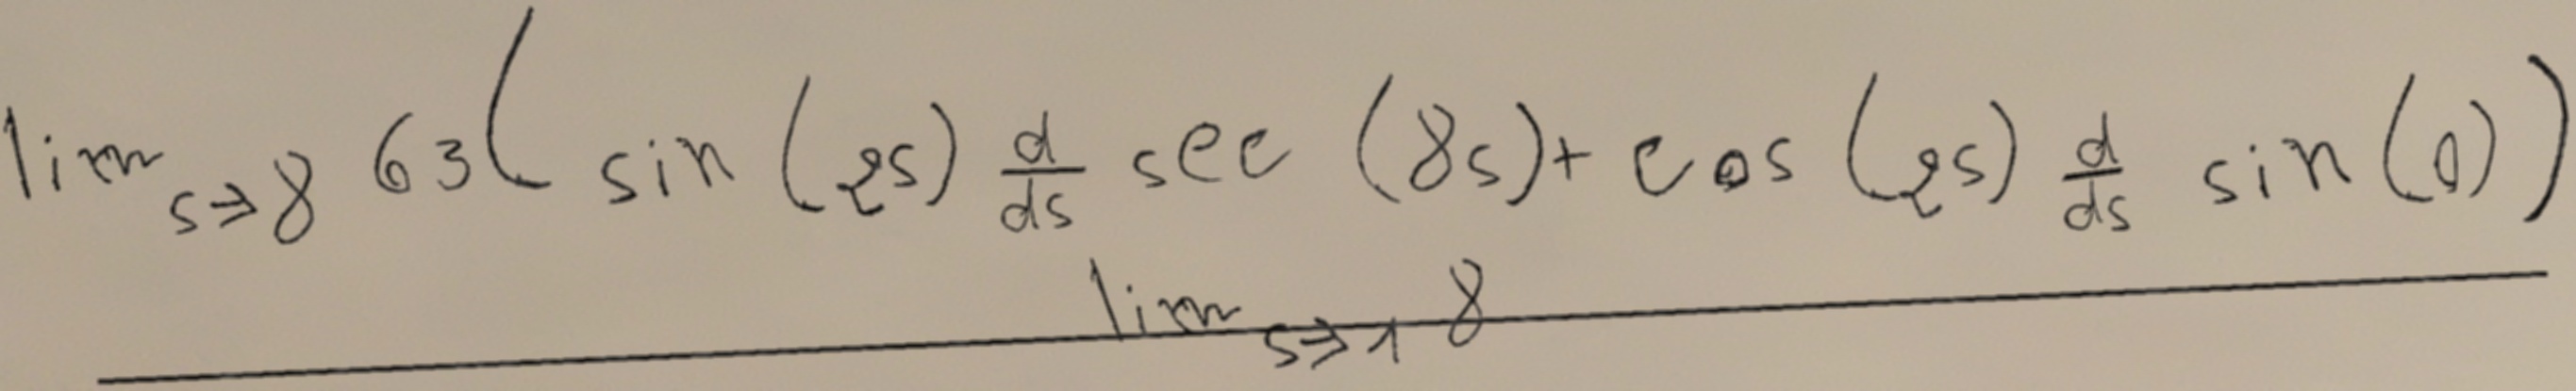 lim s→8 63( sin (2s) d/ds sec (8s) + cos (2s) d/ds sin (0) )
lim s→1 8